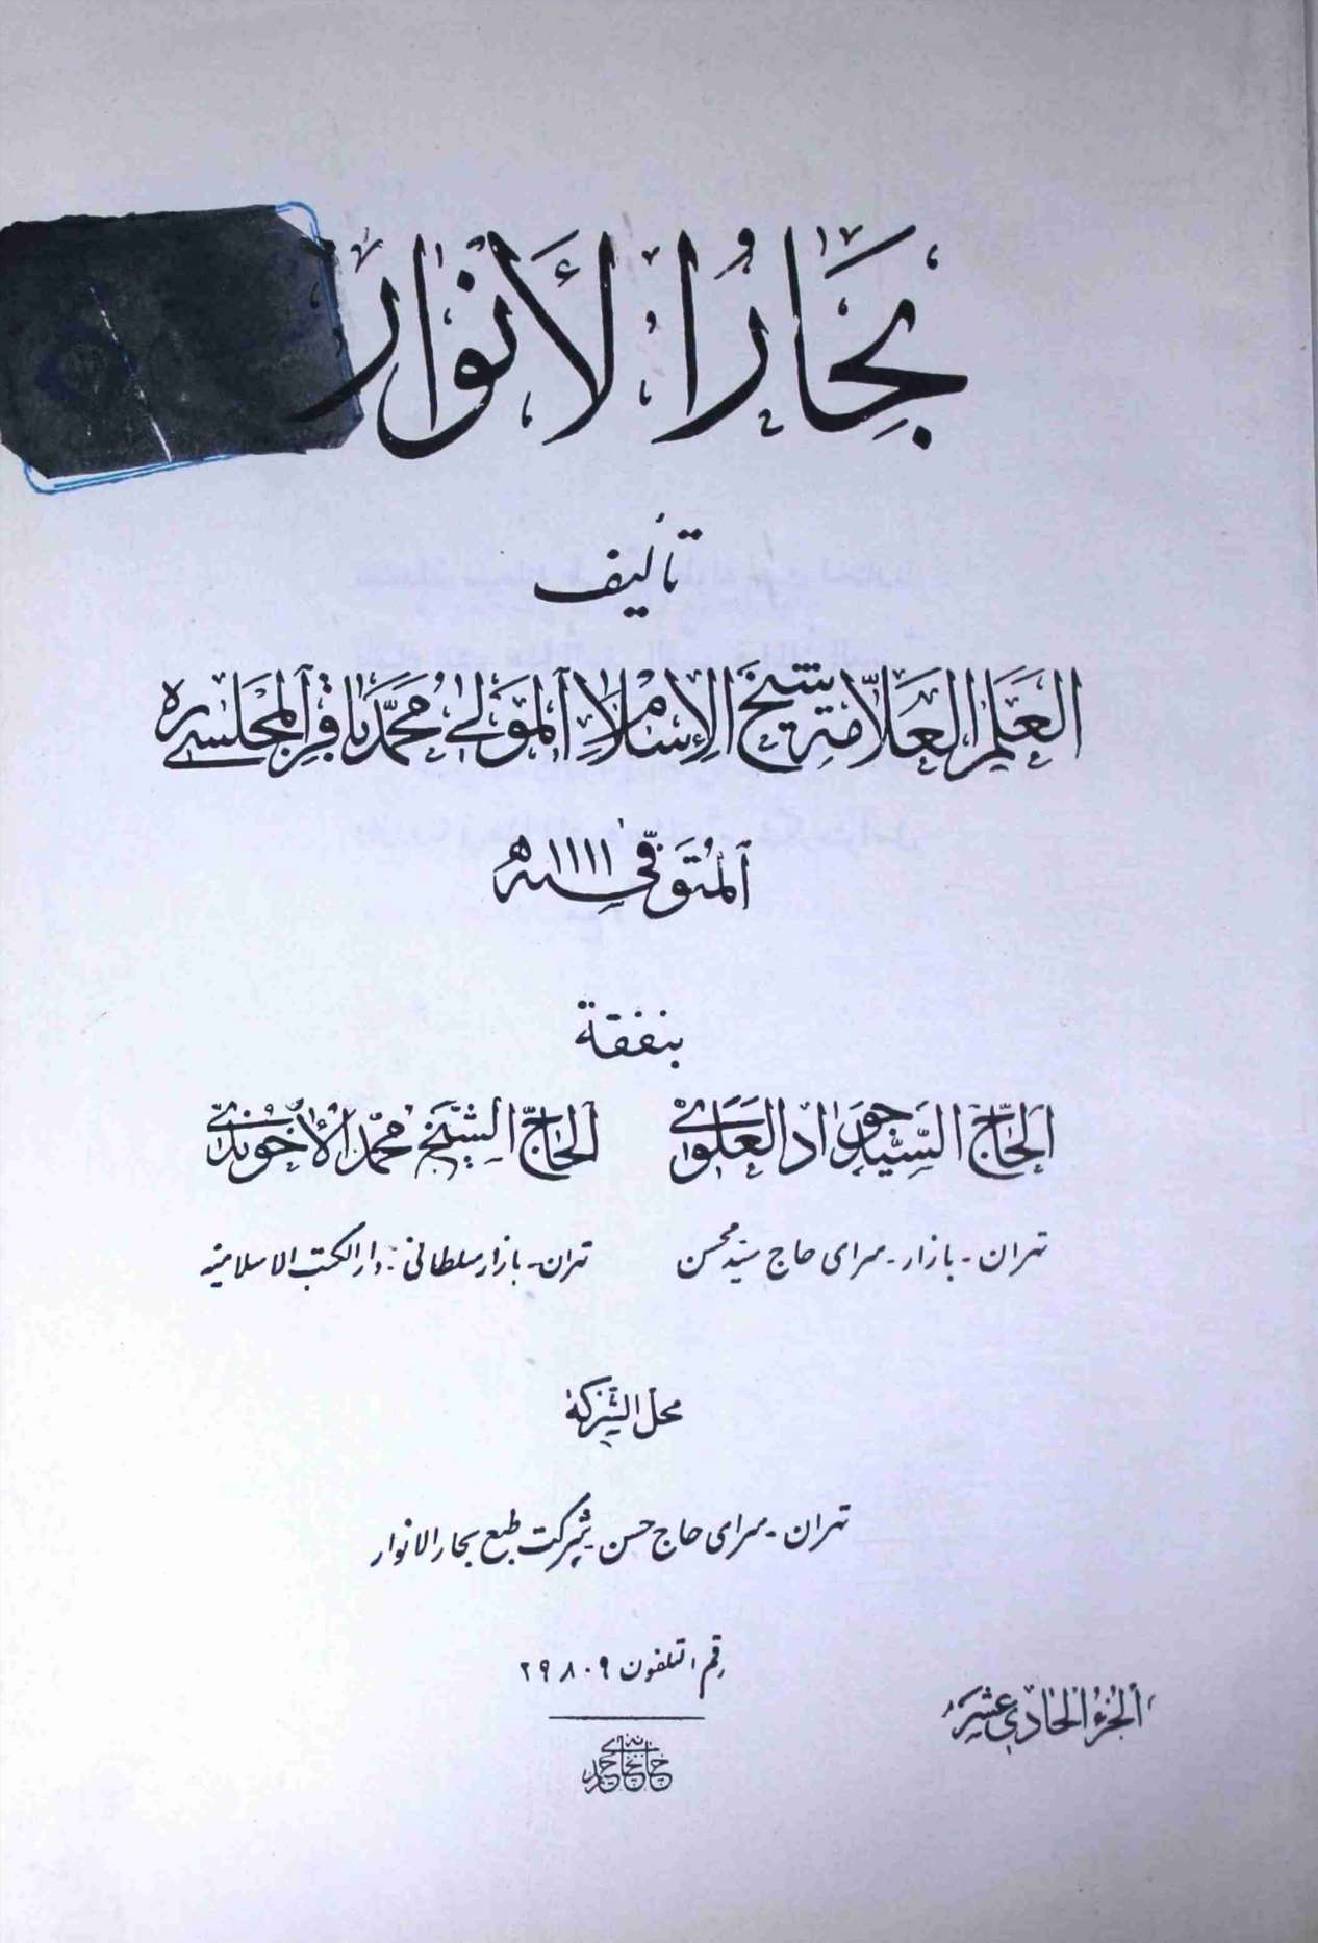 بِحَارُ الأَنْوَار
تأليف
العلم العلّامة شيخ الإسلام المولى محمّد باقر المجلسي ره
المتوفّى سنة ۱۱۱۱ ه
بنفقة
الحاجّ السّيد جواد العلوي الحاجّ الشّيخ محمّد الآخوندي
تهران - بازار - سرای حاج سید محسن تهران - بازار سلطانی - دار الکتب الاسلامیة
محل الشركة
تهران - سرای حاج حسن - شرکت طبع بحار الانوار
رقم التلفون ۲۹۸۰۹
الجزء الحادي عشر